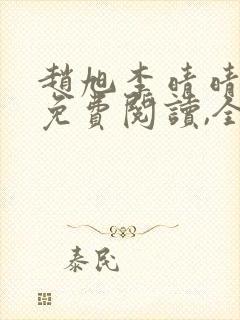 趙旭李晴晴
免費閱讀,全
泰民